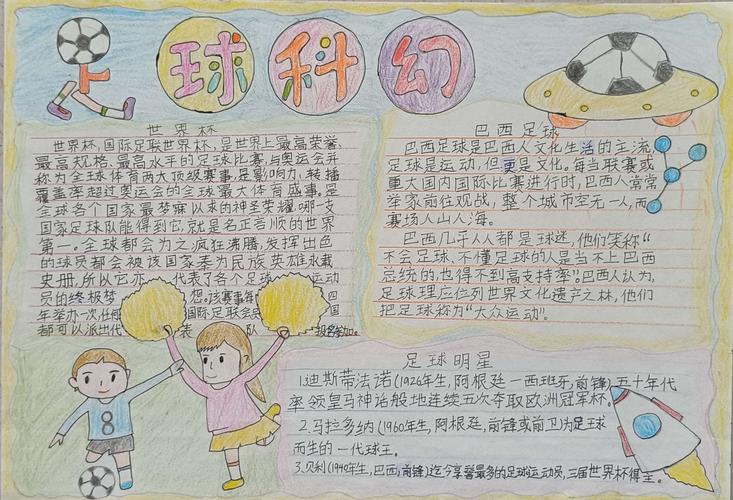 足球科幻
世界杯
世界杯,国际足联世界杯,是世界上最高荣誉、
最高规格、最高水平的足球比赛,与奥运会并
称为全球体育两大顶级赛事,是影响力、转播
覆盖率超过奥运会的全球最大体育盛事。是
全球各个国家最梦寐以求的神圣荣耀,哪一支
国家足球队能得到它,就是名正言顺的世界
第一。全球都会为之疯狂沸腾,发挥出色
的球员都会被该国家奉为民族英雄永载
史册,所以它亦代表了各个足球运动
员的终极梦想。该赛事每四
年举办一次,任何国际足联会员国
都可以派出代表队报名参加。
巴西足球
巴西足球是巴西人文化生活的主流,
足球是运动,但更是文化。每当联赛或
重大国内国际比赛进行时,巴西人常常
举家前往观战,整个城市空无一人,而
赛场人山人海。
巴西几乎人人都是球迷,他们笑称“
不会足球、不懂足球的人是当不上巴西
总统的,也得不到高支持率”。巴西人认为,
足球理应位列世界文化遗产之林,他们
把足球称为“大众运动”。
足球明星
1.迪斯蒂法诺(1926年生,阿根廷—西班牙,前锋)五十年代
率领皇马神话般地连续五次夺取欧洲冠军杯。
2.马拉多纳(1960年生,阿根廷,前锋或前卫)为足球
而生的一代球王。
3.贝利(1940年生,巴西,前锋)迄今享誉最多的足球运动员,三届世界杯得主。
8